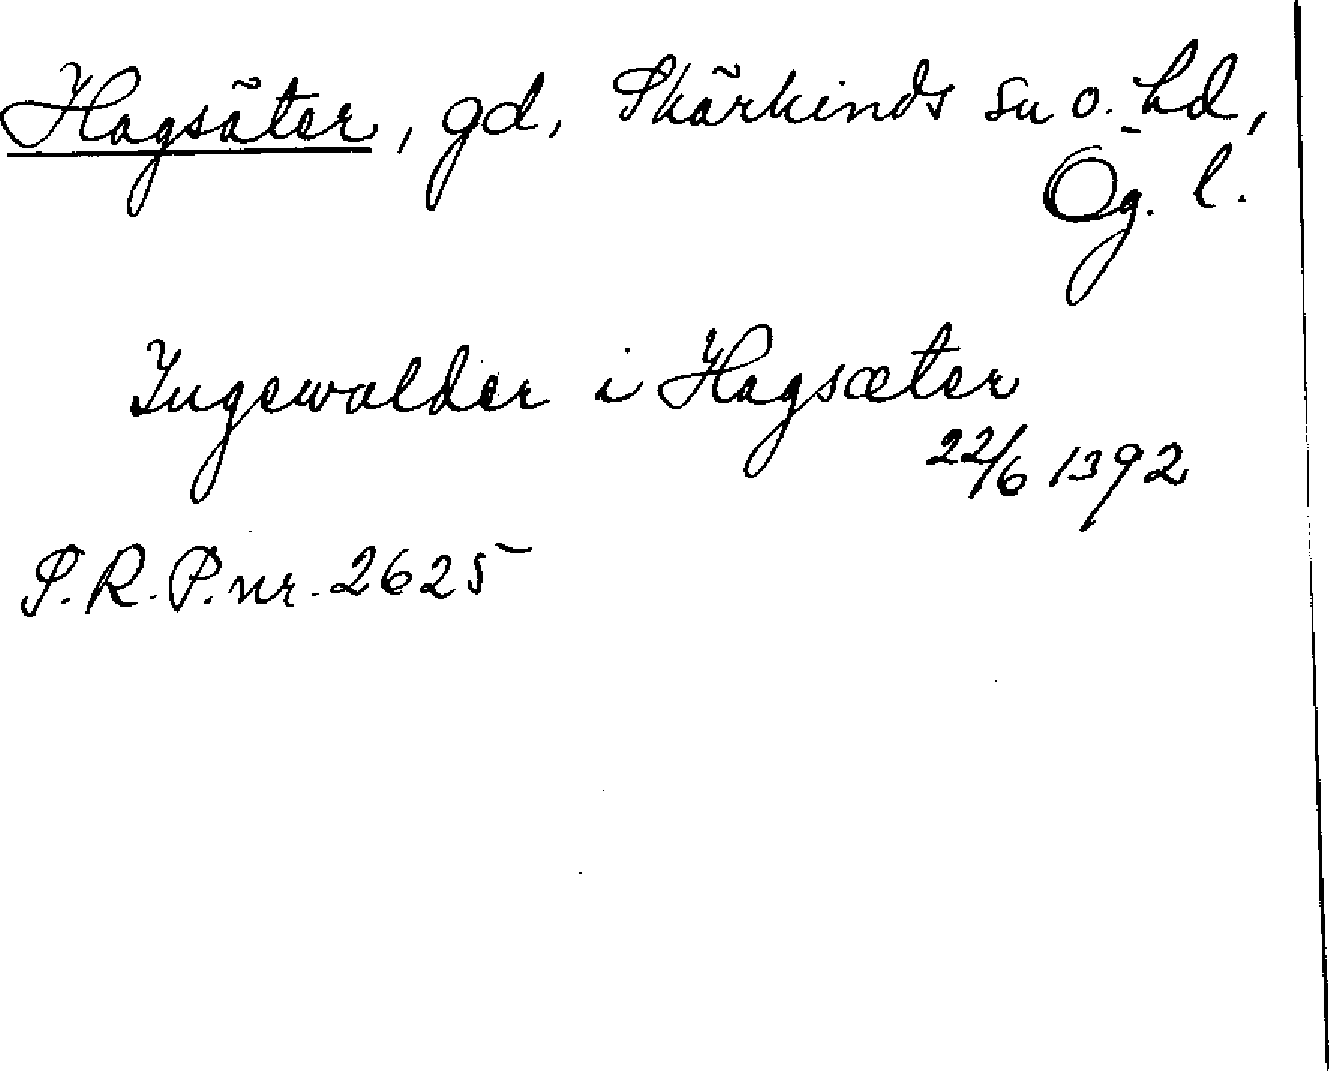 Hagsäter, gd, Skärkinds sn o. hd,
Ög. l.
Ingewalder i Hagsæter
22/6 1392
S.R.P. nr. 2625